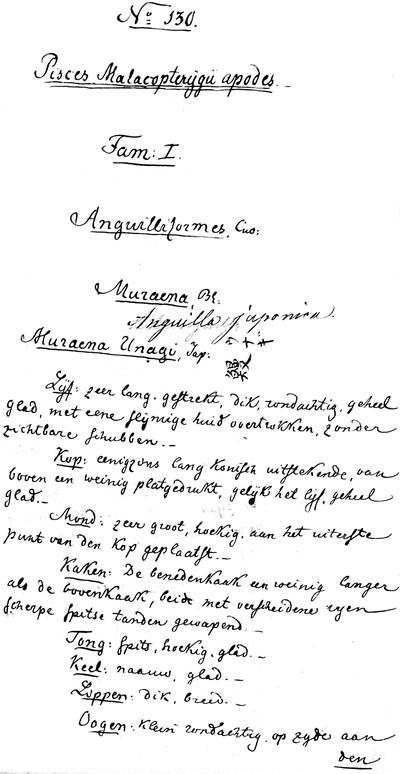 No 130.
Pisces Malacopterijgii apodes.
Fam: I.
Anguilliformes, Cuv:
Muraena, Bl.
Anguilla japonica.
Muraena Unagi, Jap:
Lijf: zeer lang, gestrekt, dik, rondachtig, geheel
glad, met eene slijmige huid overtrokken, zonder
zichtbare schubben. –
Kop: eenigzins lang konisch uitstekende, van
boven een weinig platgedrukt, gelijk het lijf, geheel
glad. –
Mond: zeer groot, hoekig, aan het uiterste
punt van den kop geplaatst. –
Kaken: De benedenkaak een weinig langer
als de bovenkaak, beide met verscheidene ryen
scherpe spitse tanden gewapend. –
Tong: spits, hoekig, glad. –
Keel: naauw, glad. –
Lippen: dik, breed. –
Oogen: klein rondachtig, op zyde aan
den